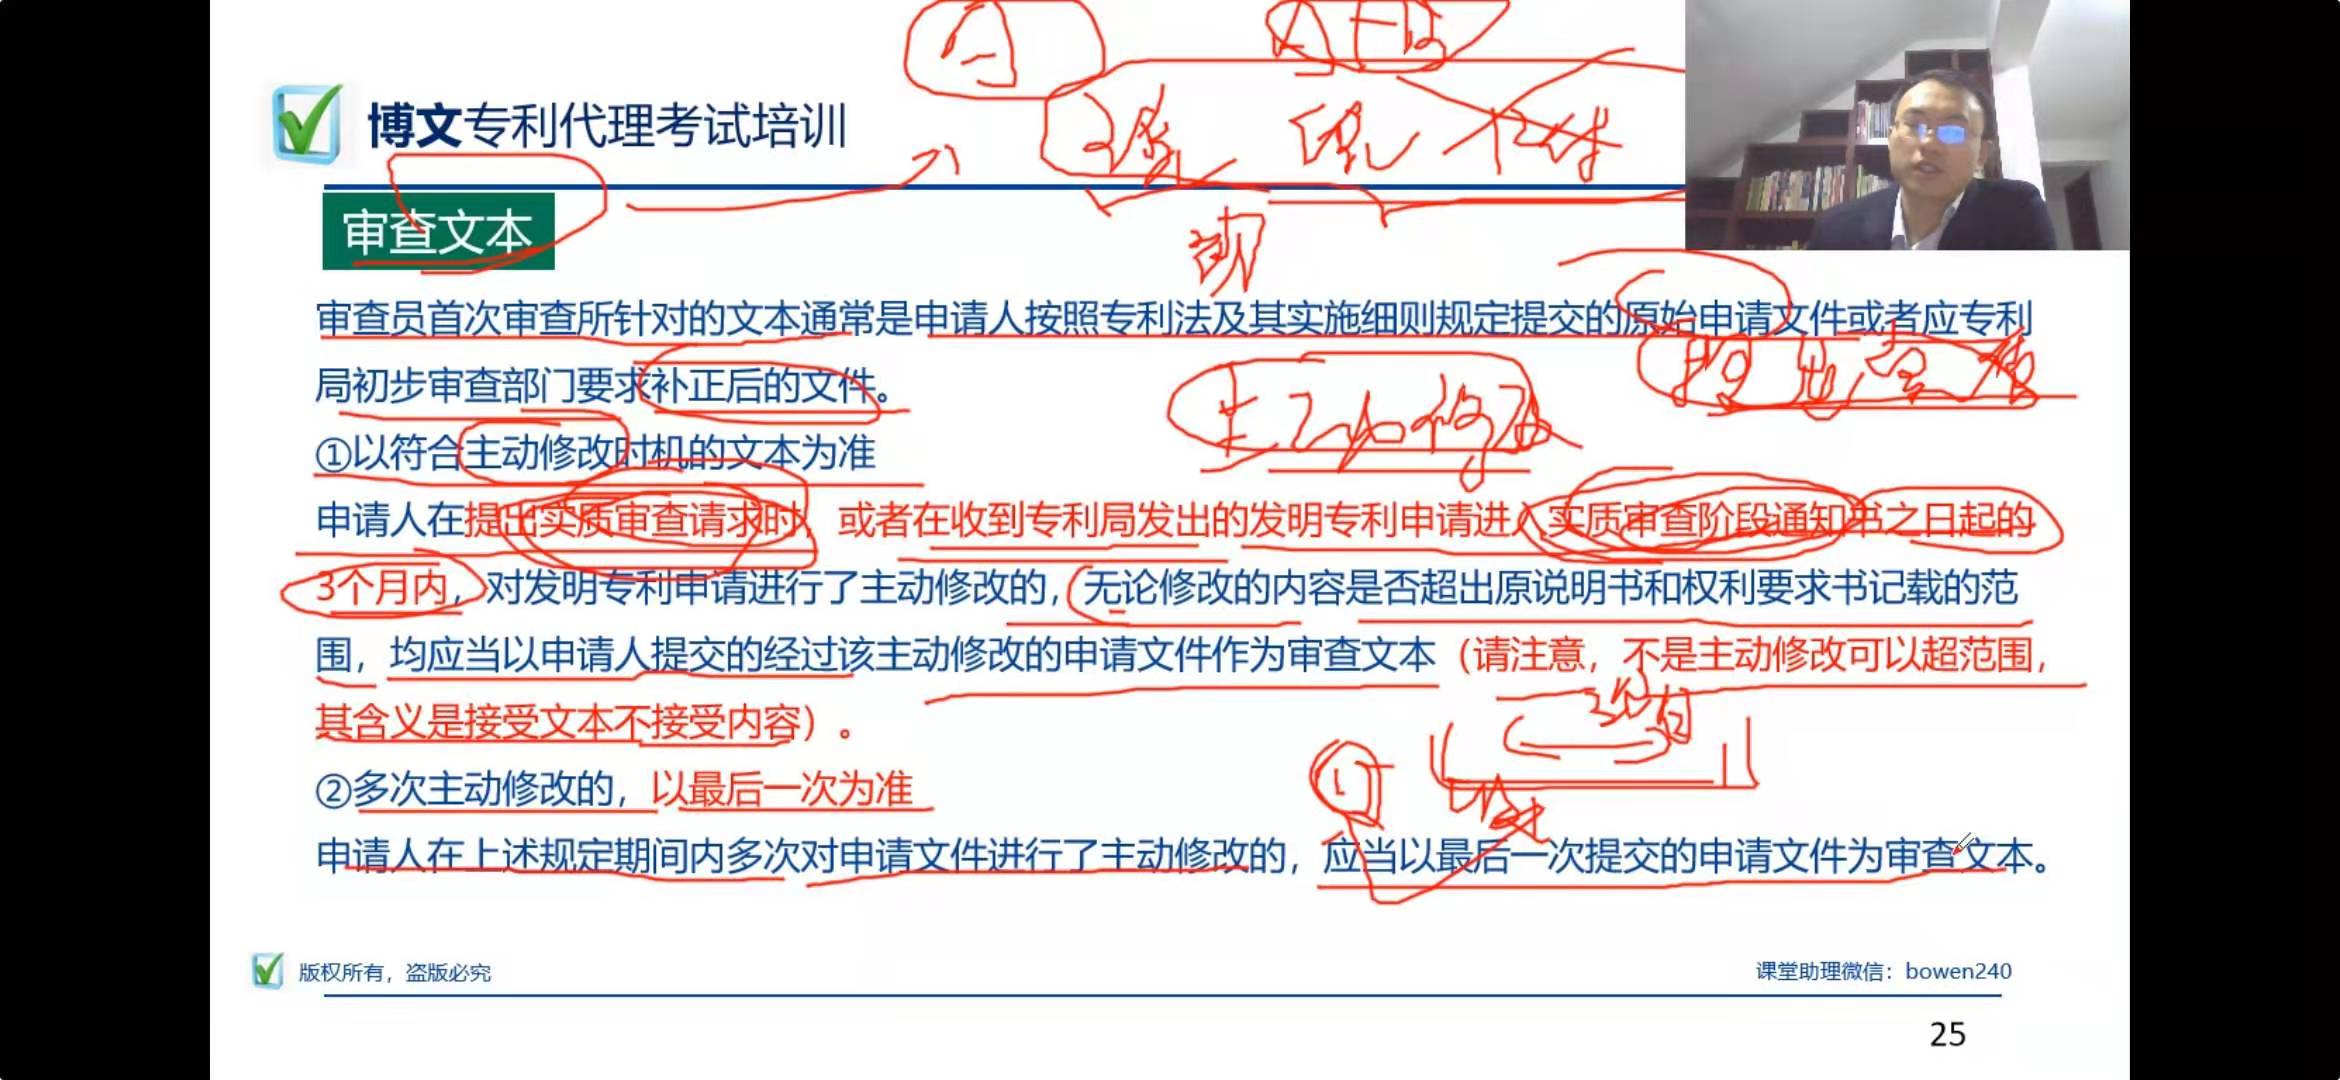 博文专利代理考试培训
审查文本
审查员首次审查所针对的文本通常是申请人按照专利法及其实施细则规定提交的原始申请文件或者应专利
局初步审查部门要求补正后的文件。
主动修改
①以符合主动修改时机的文本为准
申请人在提出实质审查请求时，或者在收到专利局发出的发明专利申请进入实质审查阶段通知书之日起的
3个月内，对发明专利申请进行了主动修改的，无论修改的内容是否超出原说明书和权利要求书记载的范
围，均应当以申请人提交的经过该主动修改的申请文件作为审查文本（请注意，不是主动修改可以超范围，
其含义是接受文本不接受内容）。
②多次主动修改的，以最后一次为准
申请人在上述规定期间内多次对申请文件进行了主动修改的，应当以最后一次提交的申请文件为审查文本。
版权所有，盗版必究
课堂助理微信：bowen240
25